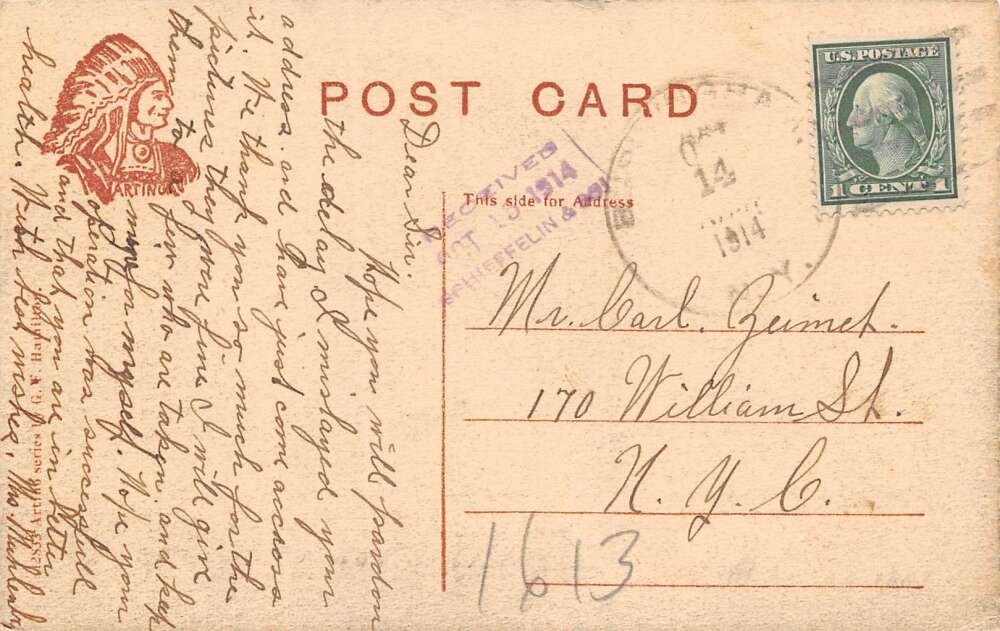 POST CARD
This side for Address
U.S. POSTAGE
1 CENT 1
OCT
14
1914
N.Y.
RECEIVED
OCT 15 1914
SCHIEFFELIN & CO.
ARTINO
Series G. F.
Mr. Carl. Zeimet.
170 William St.
N. Y. C.
1613
Dear Sir.
Hope you will pardon
the delay I mislayed your
address. and have just come accross
it. We thank you so much for the
pictures they were fine I will give
them to a few who are taken. and keep
mine for myself. Hope your
operation was successfull
and that you are in better
health. With best wishes. Mrs.